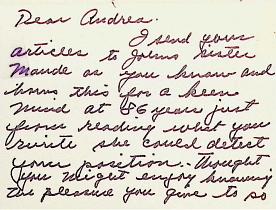 Dear Andrea.
I send your
articles to Joems sister
Maude as you know and
hows this for a keen
mind at 86 years just
from reading what you
write she could detect
your position. - Thought
you might enjoy knowing
the pleasure you give to so